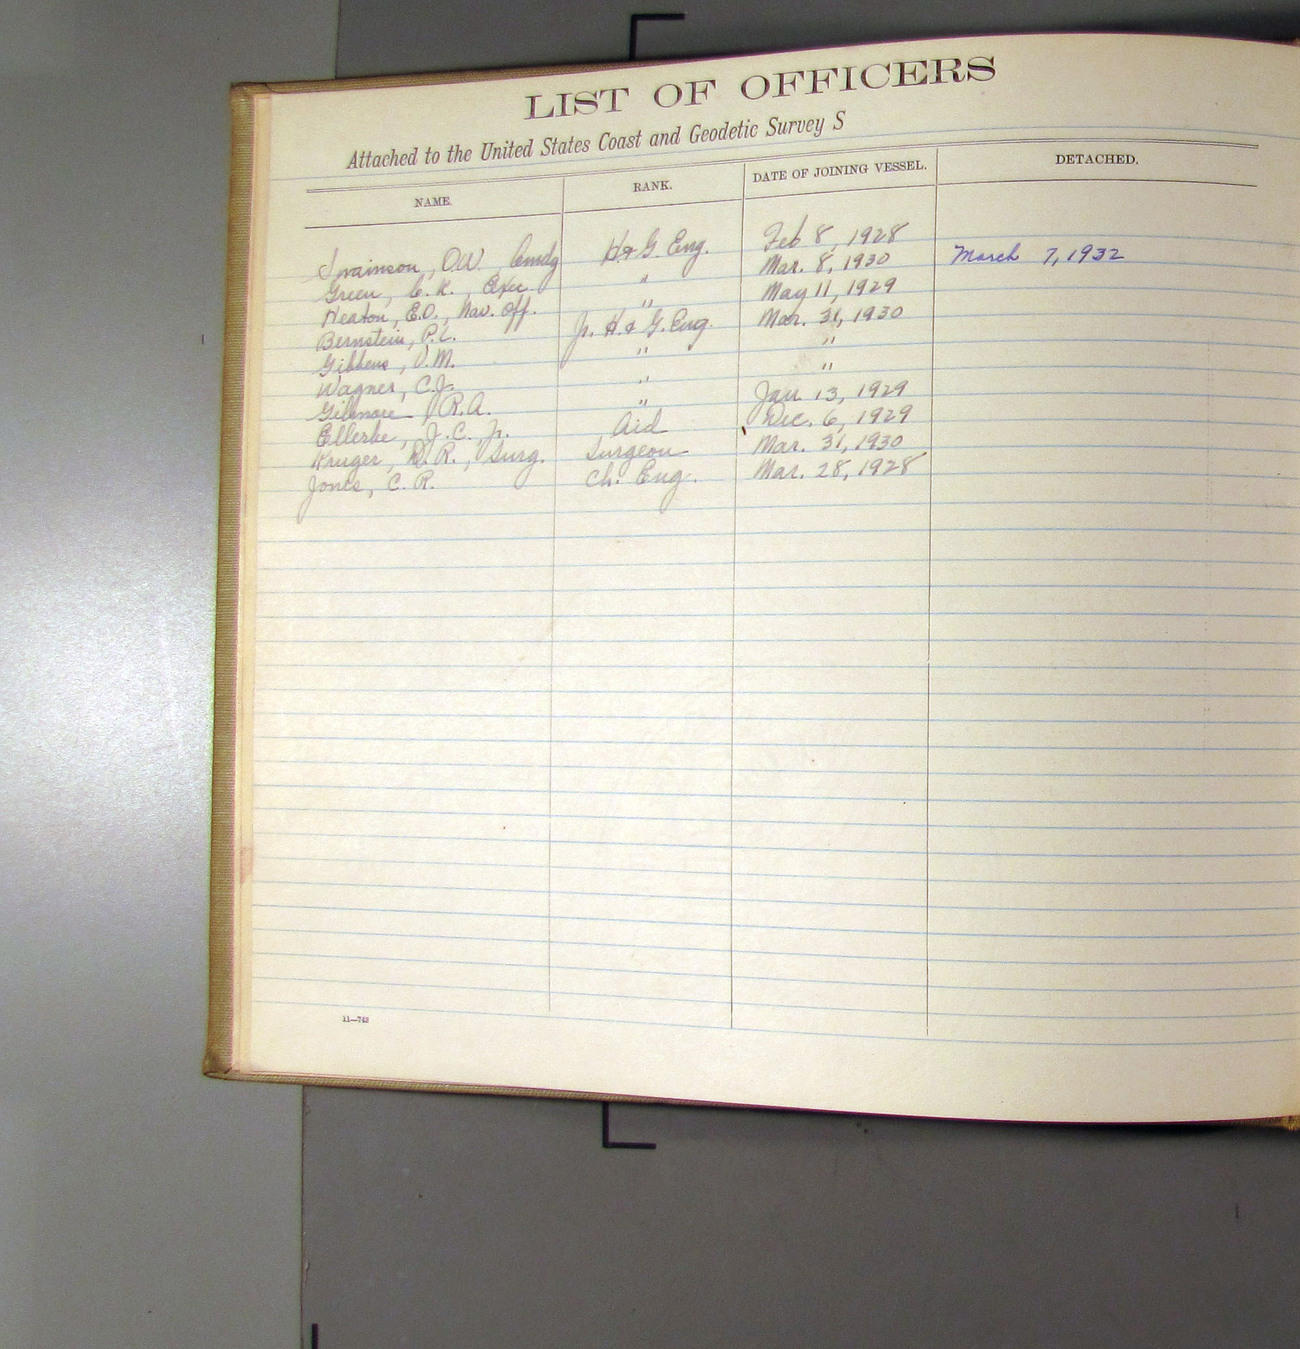 LIST OF OFFICERS
Attached to the United States Coast and Geodetic Survey S
NAME. RANK. DATE OF JOINING VESSEL. DETACHED.
Swainson, O.W. Comdg H. & G. Eng. Feb 8, 1928
Green, C. K., Exec. " Mar. 8, 1930 March 7, 1932
Heaton, E.O., Nav. Off. " May 11, 1929
Bernstein, P.L. Jr. H. & G. Eng. Mar. 31, 1930
Gibbens, V.M. " "
Wagner, C.J. " "
Gilmore R.A. " Jan 13, 1929
Ellerbe, J.C. Jr. Aid Dec. 6, 1929
Kruger, D.R., Surg. Surgeon Mar. 31, 1930
Jones, C. R. Ch. Eng. Mar. 28, 1928
11—743